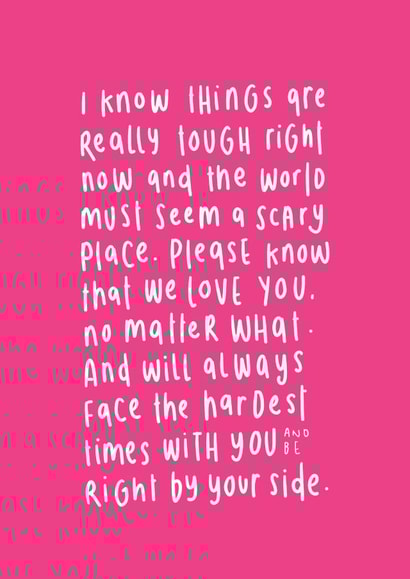 I know things are
Really tough right
now and the world
must seem a scary
place. Please know
that we love you.
no matter what.
And will always
face the hardest
times with you AND BE
Right by your side.